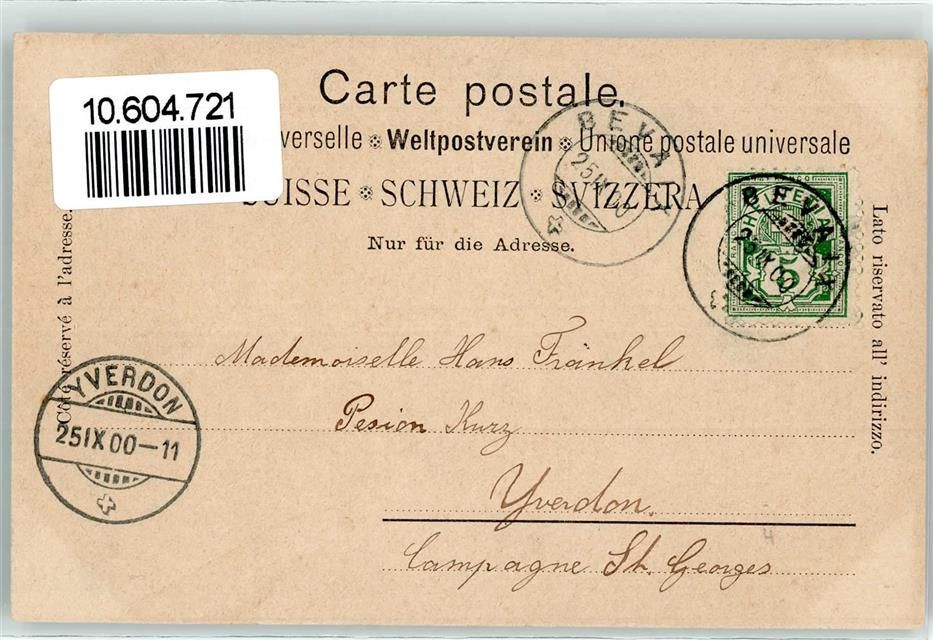 Carte postale.
10.604.721
verselle Weltpostverein Unione postale universale
SUISSE SCHWEIZ SVIZZERA
Nur für die Adresse.
BEVAIX
25 IX 00
BEVAIX
25 IX 00
HELVETIA
5
Côté réservé à l'adresse.
Lato riservato all' indirizzo.
Mademoiselle Hans Fränkel
Pesion Kurz
Yverdon.
Campagne St. Georges
YVERDON
25 IX 00-11